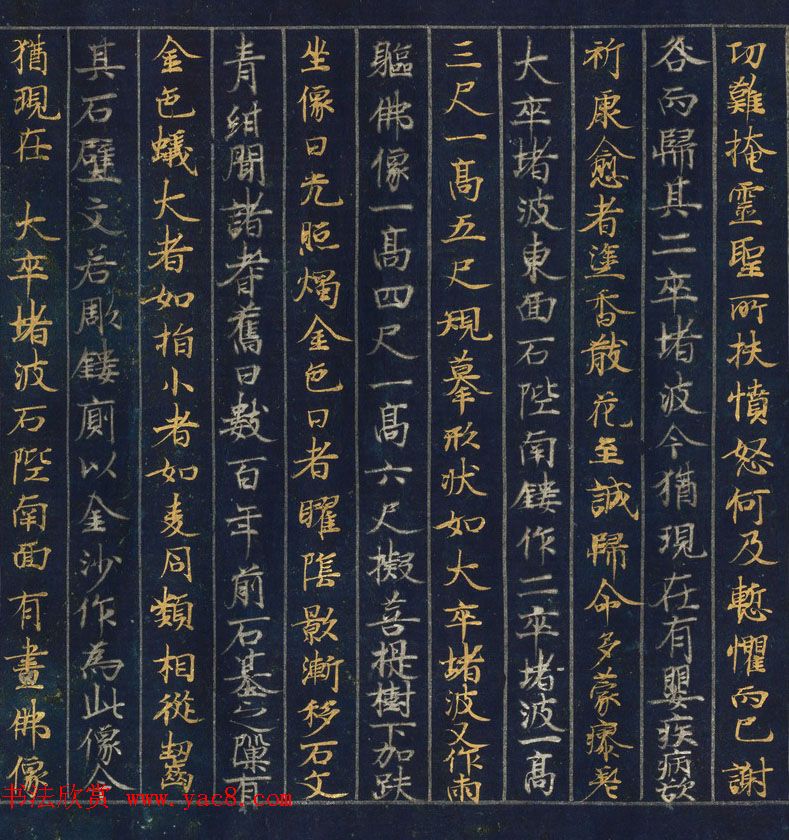 功難掩靈聖所扶憤怒何及慙懼而已謝
咎而歸其二卒堵波今猶現在有嬰疾病欲
祈康愈者塗香散花至誠歸命多蒙瘳差
大卒堵波東面石陛南鏤作二卒堵波一高
三尺一高五尺規摹形状如大卒堵波又作兩
軀佛像一高四尺一高六尺擬菩提樹下加趺
坐像日光照燭金色日者曜陰影漸移石文
青紺聞諸耆舊曰數百年前石基之隟有
金色蟻大者如指小者如麦同類相從齧
其石壁文若彫鏤廁以金沙作為此像今
猶現在 大卒堵波石陛南面有畫佛像
书法欣赏 www.yac8.com